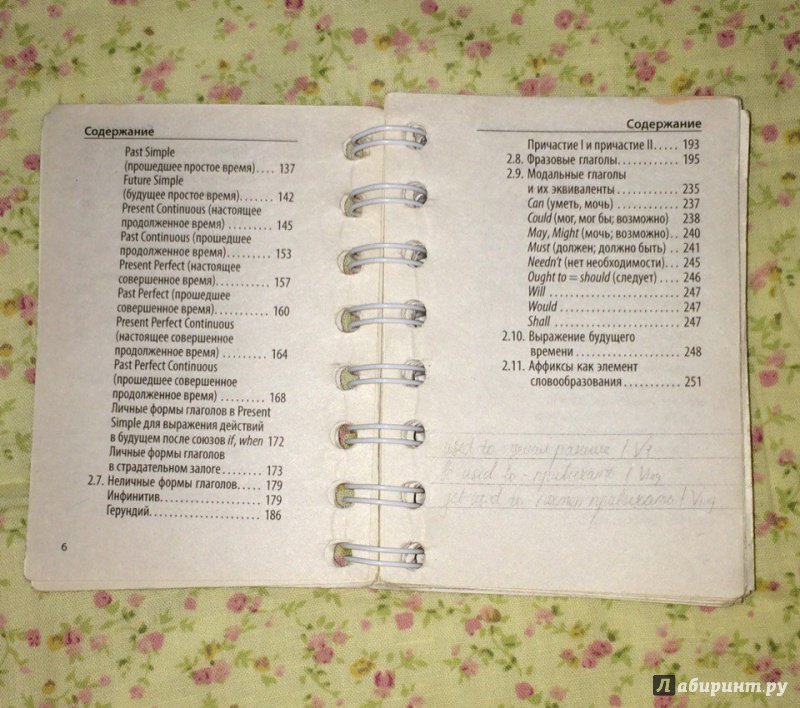 Содержание
Past Simple
(прошедшее простое время).... 137
Future Simple
(будущее простое время)....... 142
Present Continuous (настоящее
продолженное время) .......... 145
Past Continuous (прошедшее
продолженное время) .......... 153
Present Perfect (настоящее
совершенное время)............ 157
Past Perfect (прошедшее
совершенное время)............ 160
Present Perfect Continuous
(настоящее совершенное
продолженное время) .......... 164
Past Perfect Continuous
(прошедшее совершенное
продолженное время) .......... 168
Личные формы глаголов в Present
Simple для выражения действий
в будущем после союзов if, when 172
Личные формы глаголов
в страдательном залоге........ 173
2.7. Неличные формы глаголов..... 179
Инфинитив..................... 179
Герундий....................... 186
6
Содержание
Причастие I и причастие II..... 193
2.8. Фразовые глаголы............. 195
2.9. Модальные глаголы
и их эквиваленты .............. 235
Can (уметь, мочь) ............... 237
Could (мог, мог бы; возможно) 238
May, Might (мочь; возможно).. 240
Must (должен; должно быть) .. 241
Needn't (нет необходимости).. 245
Ought to = should (следует).... 246
Will ............................ 247
Would .......................... 247
Shall ........................... 247
2.10. Выражение будущего
времени ....................... 248
2.11. Аффиксы как элемент
словообразования............. 251
used to - / V1
used to - привыкать / Ving
get used to - привыкать / Ving
Лабиринт.ру